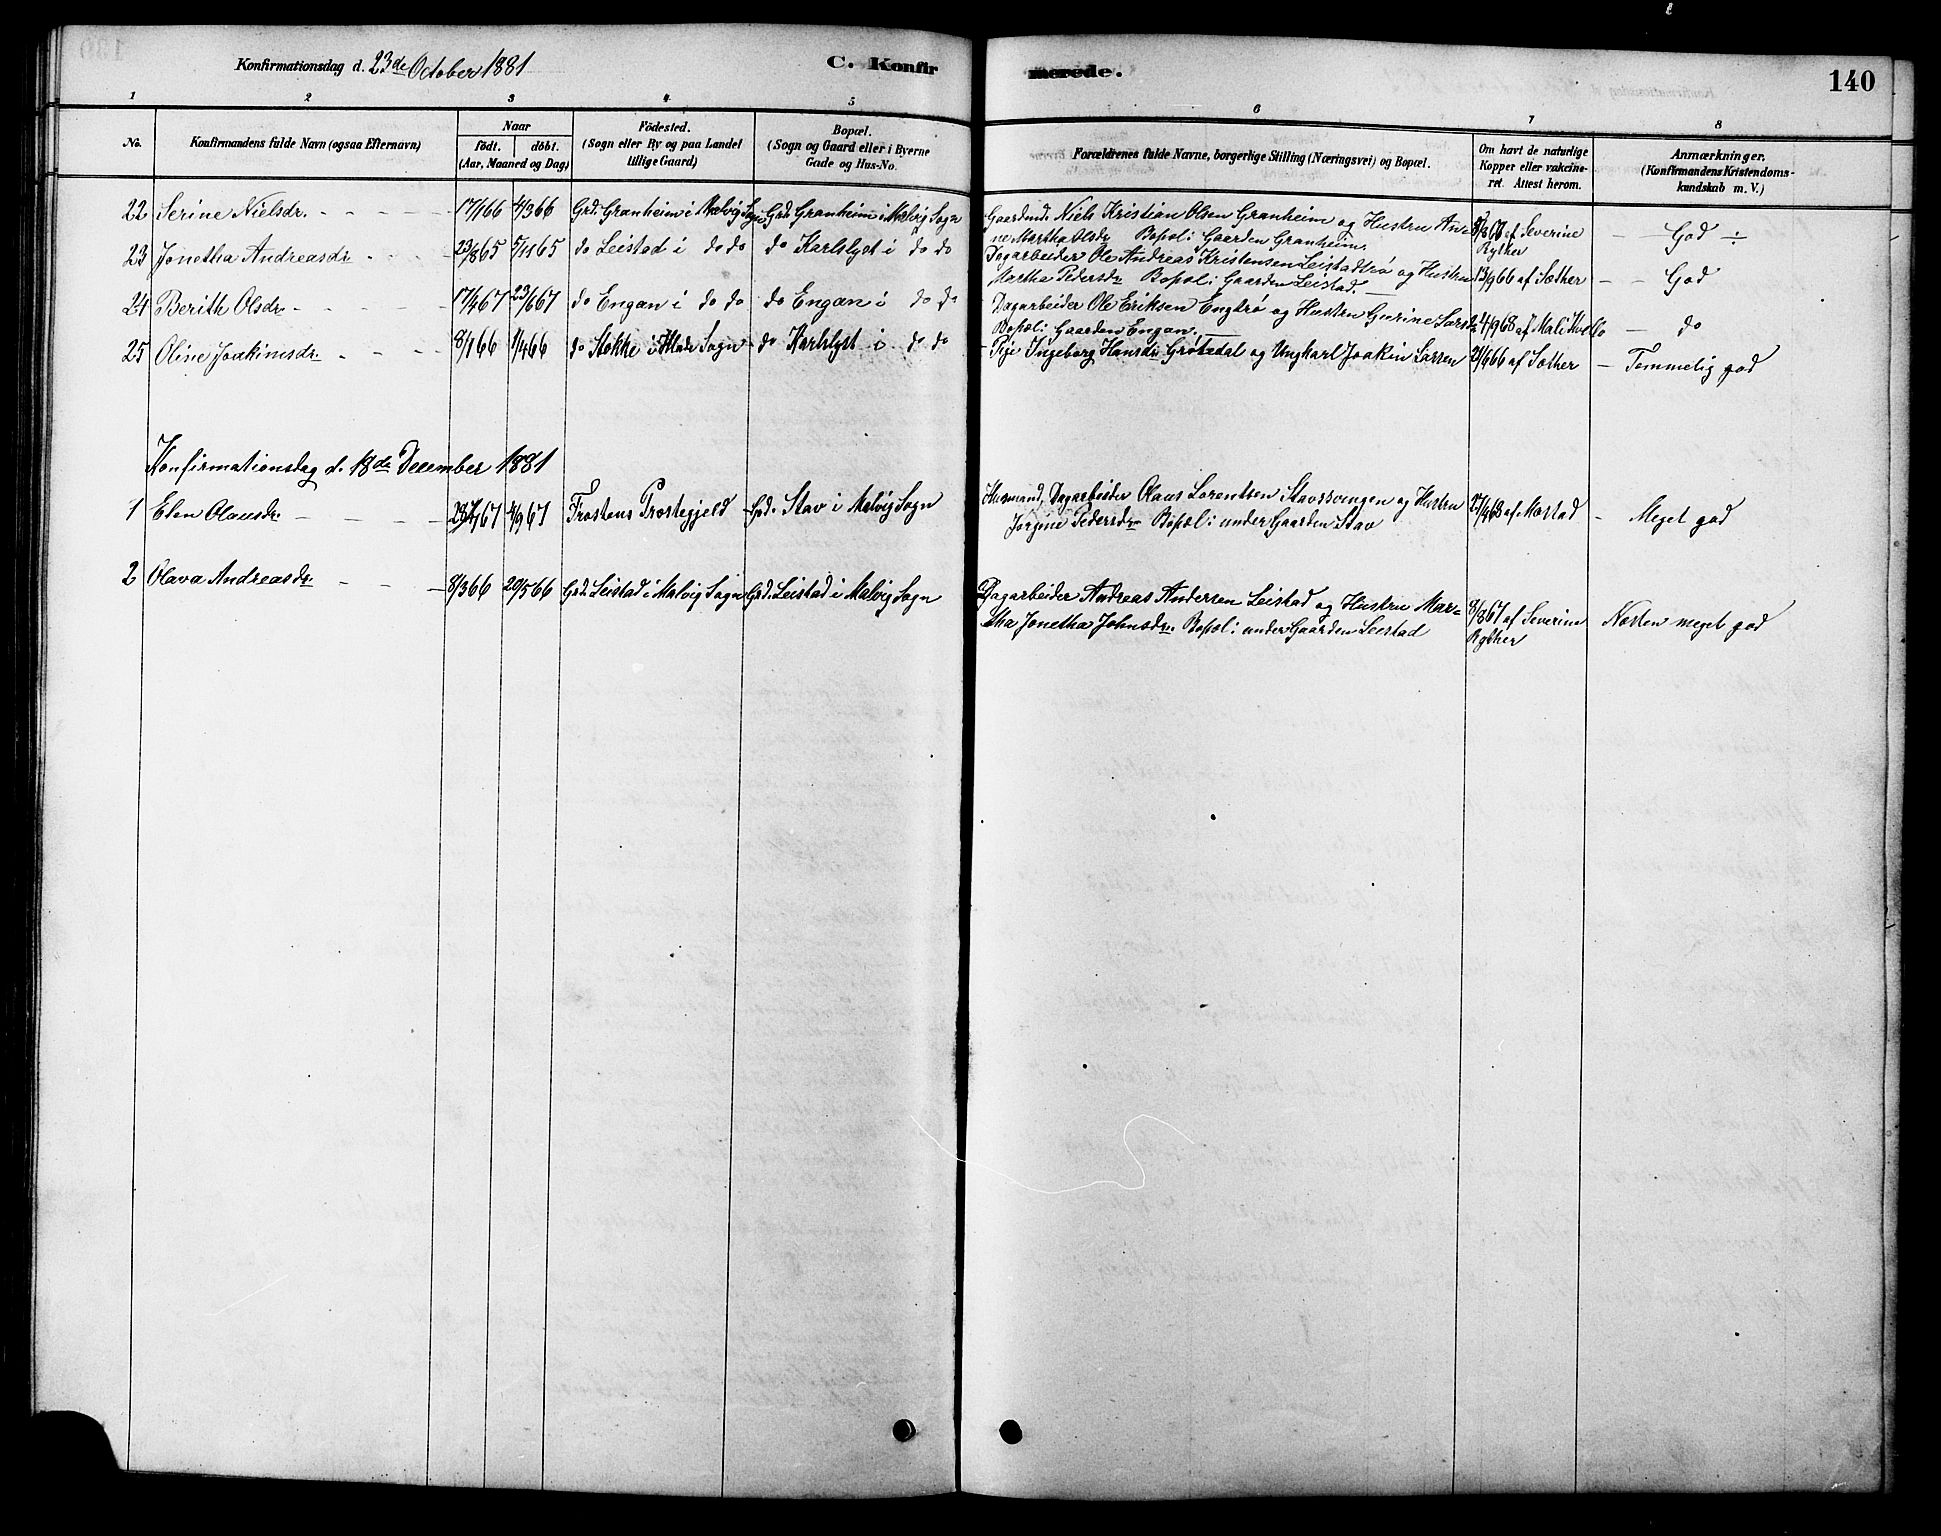 Konfirmationsdag d. 23de October 1881
C. Konfirmerede.
140
1 2 3 4 5 6 7 8
No.
Konfirmandens fulde Navn (ogsaa Efternavn)
Naar
födt. döbt.
(Aar, Maaned og Dag)
Födested.
(Sogn eller By og paa Landet
tillige Gaard)
Bopæl.
(Sogn og Gaard eller i Byerne
Gade og Hus-No.
Forældrenes fulde Navne, borgerlige Stilling (Næringsvei) og Bopæl.
Om havt de naturlige
Kopper eller vakcine-
ret. Attest herom.
Anmærkninger.
(Konfirmandens Kristendoms-
kundskab m. V.)
22 Serine Nielsdr. 17/1 66 4/3 66 Grd. Granheim i Malvig Sogn Grd. Granheim i Malvig Sogn Gaardmd. Niels Kristian Olsen Granheim og Hustru An-
ne Martha Olsdr Bopæl: Gaarden Granheim. 8/8 67 af Severine Rylher God ÷
23 Jonetha Andreasdr 23/8 65 5/11 65 do Leistad i do do do Karlslyst i do do Dagarbeider Ole Andreas Kristensen Leistadtrø og Hustru
Martha Pedersdr Bopæl: Gaarden Leistad. 13/9 66 af Sæther God
24 Berith Olsdr 17/4 67 23/6 67 do Engan i do do do Engan i do do Dagarbeider Ole Eriksen Engtrø og Hustru Gurine Larsdr
Bopæl: Gaarden Engan. 4/9 68 af Mali do
25 Oline Joakimsdr. 8/1 66 1/4 66 do Stokke i Sogn do Karlslyst i do do Pige Ingeborg Hansdr Grøtsdal og Ungkarl Joakin Larsen 21/6 66 af Sæther Temmelig god
Konfirmationsdag d. 18de December 1881
1 Elen Olausdr. 67 4/9 67 Frostens Prestegjeld Grd. Stav i Malvig Sogn Husmand, Dagarbeider Olaus Lorentsen Stavssvingen og Hustru
Jørgine Pedersdr Bopæl: under Gaarden Stav 27/4 68 af Mostad Meget god
2 Olava Andreasdr. 8/3 66 20/5 66 Grd. Leistad i Malvig Sogn Grd. Leistad i Malvig Sogn Dagarbeider Andreas Andersen Leistad og Hustru Mar=
tha Jonetha Johnsdr. Bopæl: under Gaarden Leistad 8/8 67 af Severine Rylher Næsten meget god